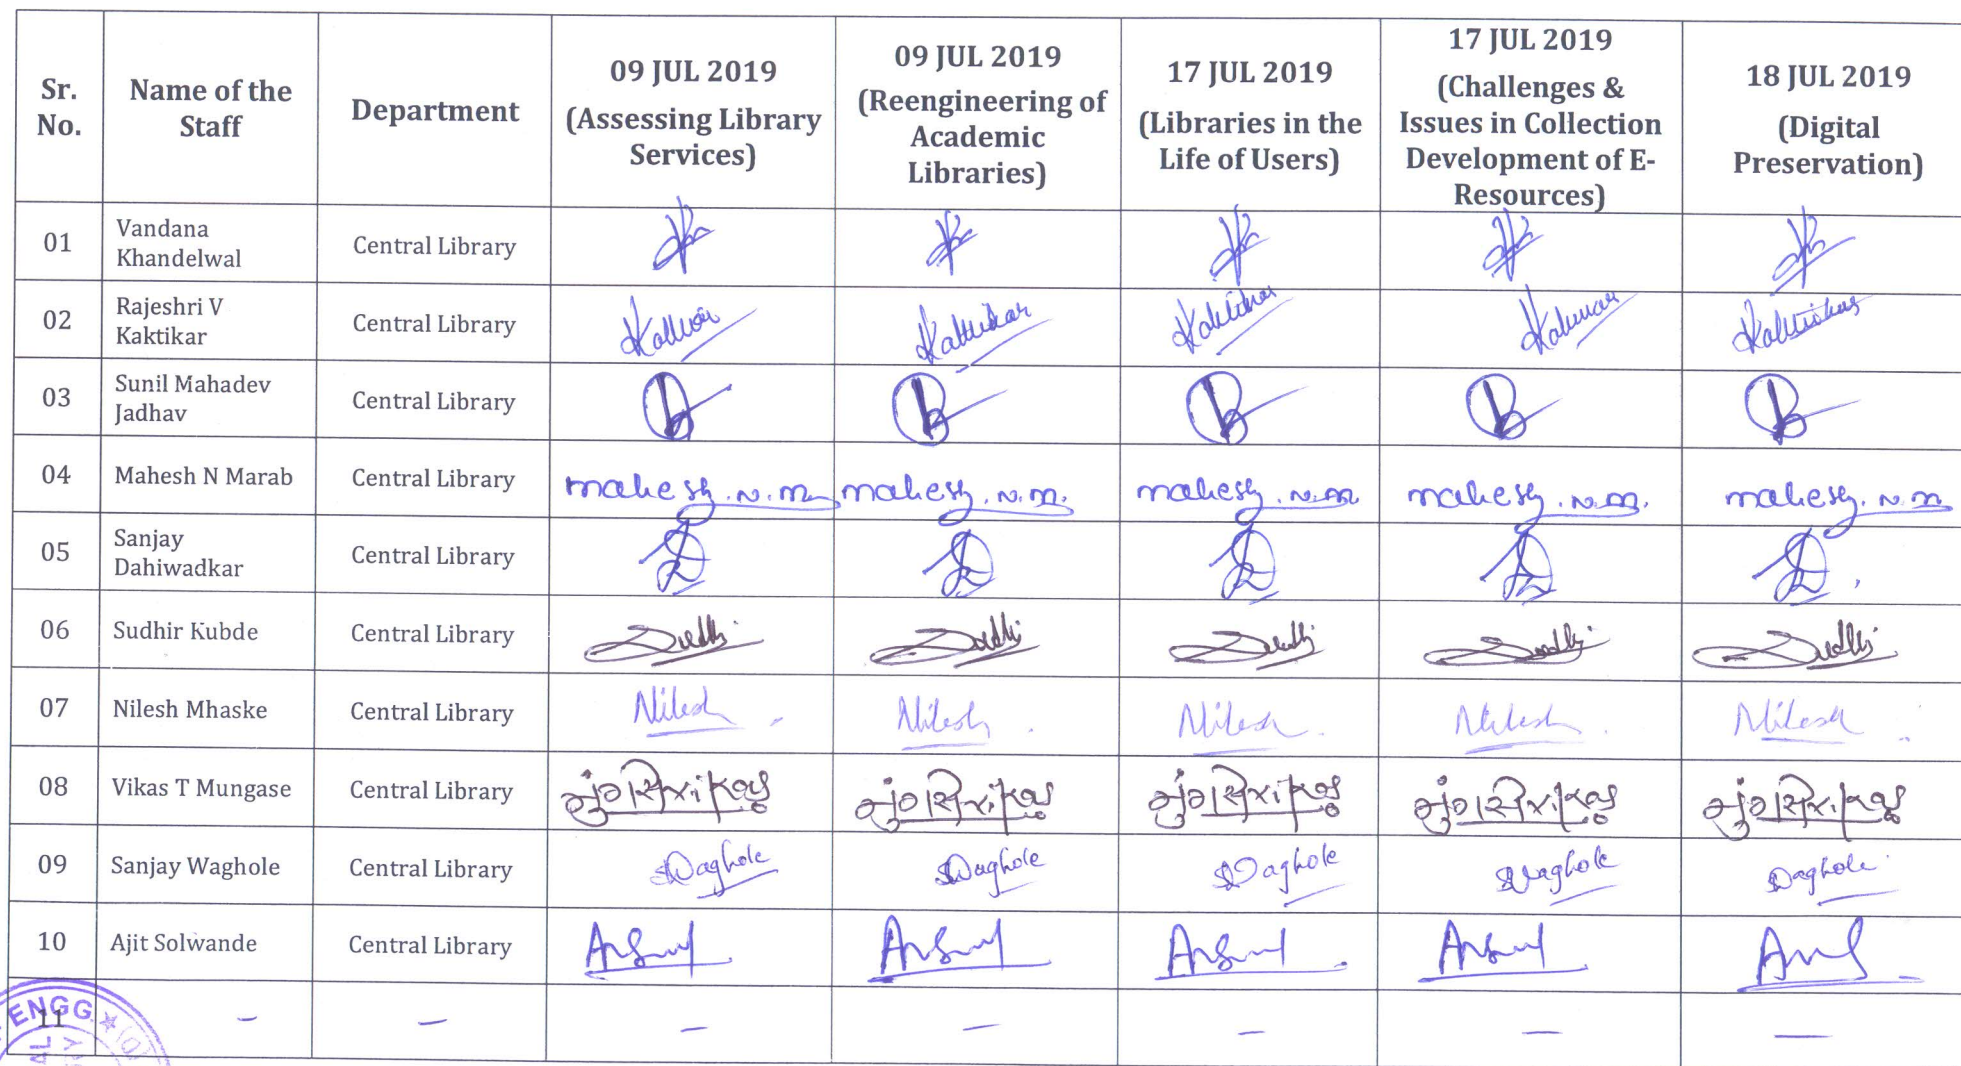 Sr. No.
Name of the Staff
Department
09 JUL 2019
(Assessing Library Services)
09 JUL 2019
(Reengineering of Academic Libraries)
17 JUL 2019
(Libraries in the Life of Users)
17 JUL 2019
(Challenges & Issues in Collection Development of E-Resources)
18 JUL 2019
(Digital Preservation)
01 Vandana Khandelwal Central Library
02 Rajeshri V Kaktikar Central Library
03 Sunil Mahadev Jadhav Central Library
04 Mahesh N Marab Central Library mahesh.N.M mahesh.N.M. mahesh.N.M mahesh.N.M. mahesh.N.M
05 Sanjay Dahiwadkar Central Library
06 Sudhir Kubde Central Library
07 Nilesh Mhaske Central Library Nilesh Nilesh Nilesh Nilesh Nilesh
08 Vikas T Mungase Central Library
09 Sanjay Waghole Central Library SWaghole SWaghole SWaghole SWaghole SWaghole
10 Ajit Solwande Central Library
11 – – – – – – –
ENGG